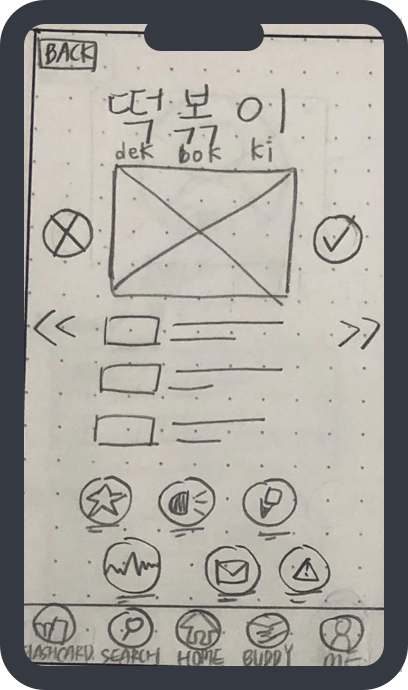 BACK
떡 볶 이
dek bok ki
FLASHCARD SEARCH HOME BUDDY ME